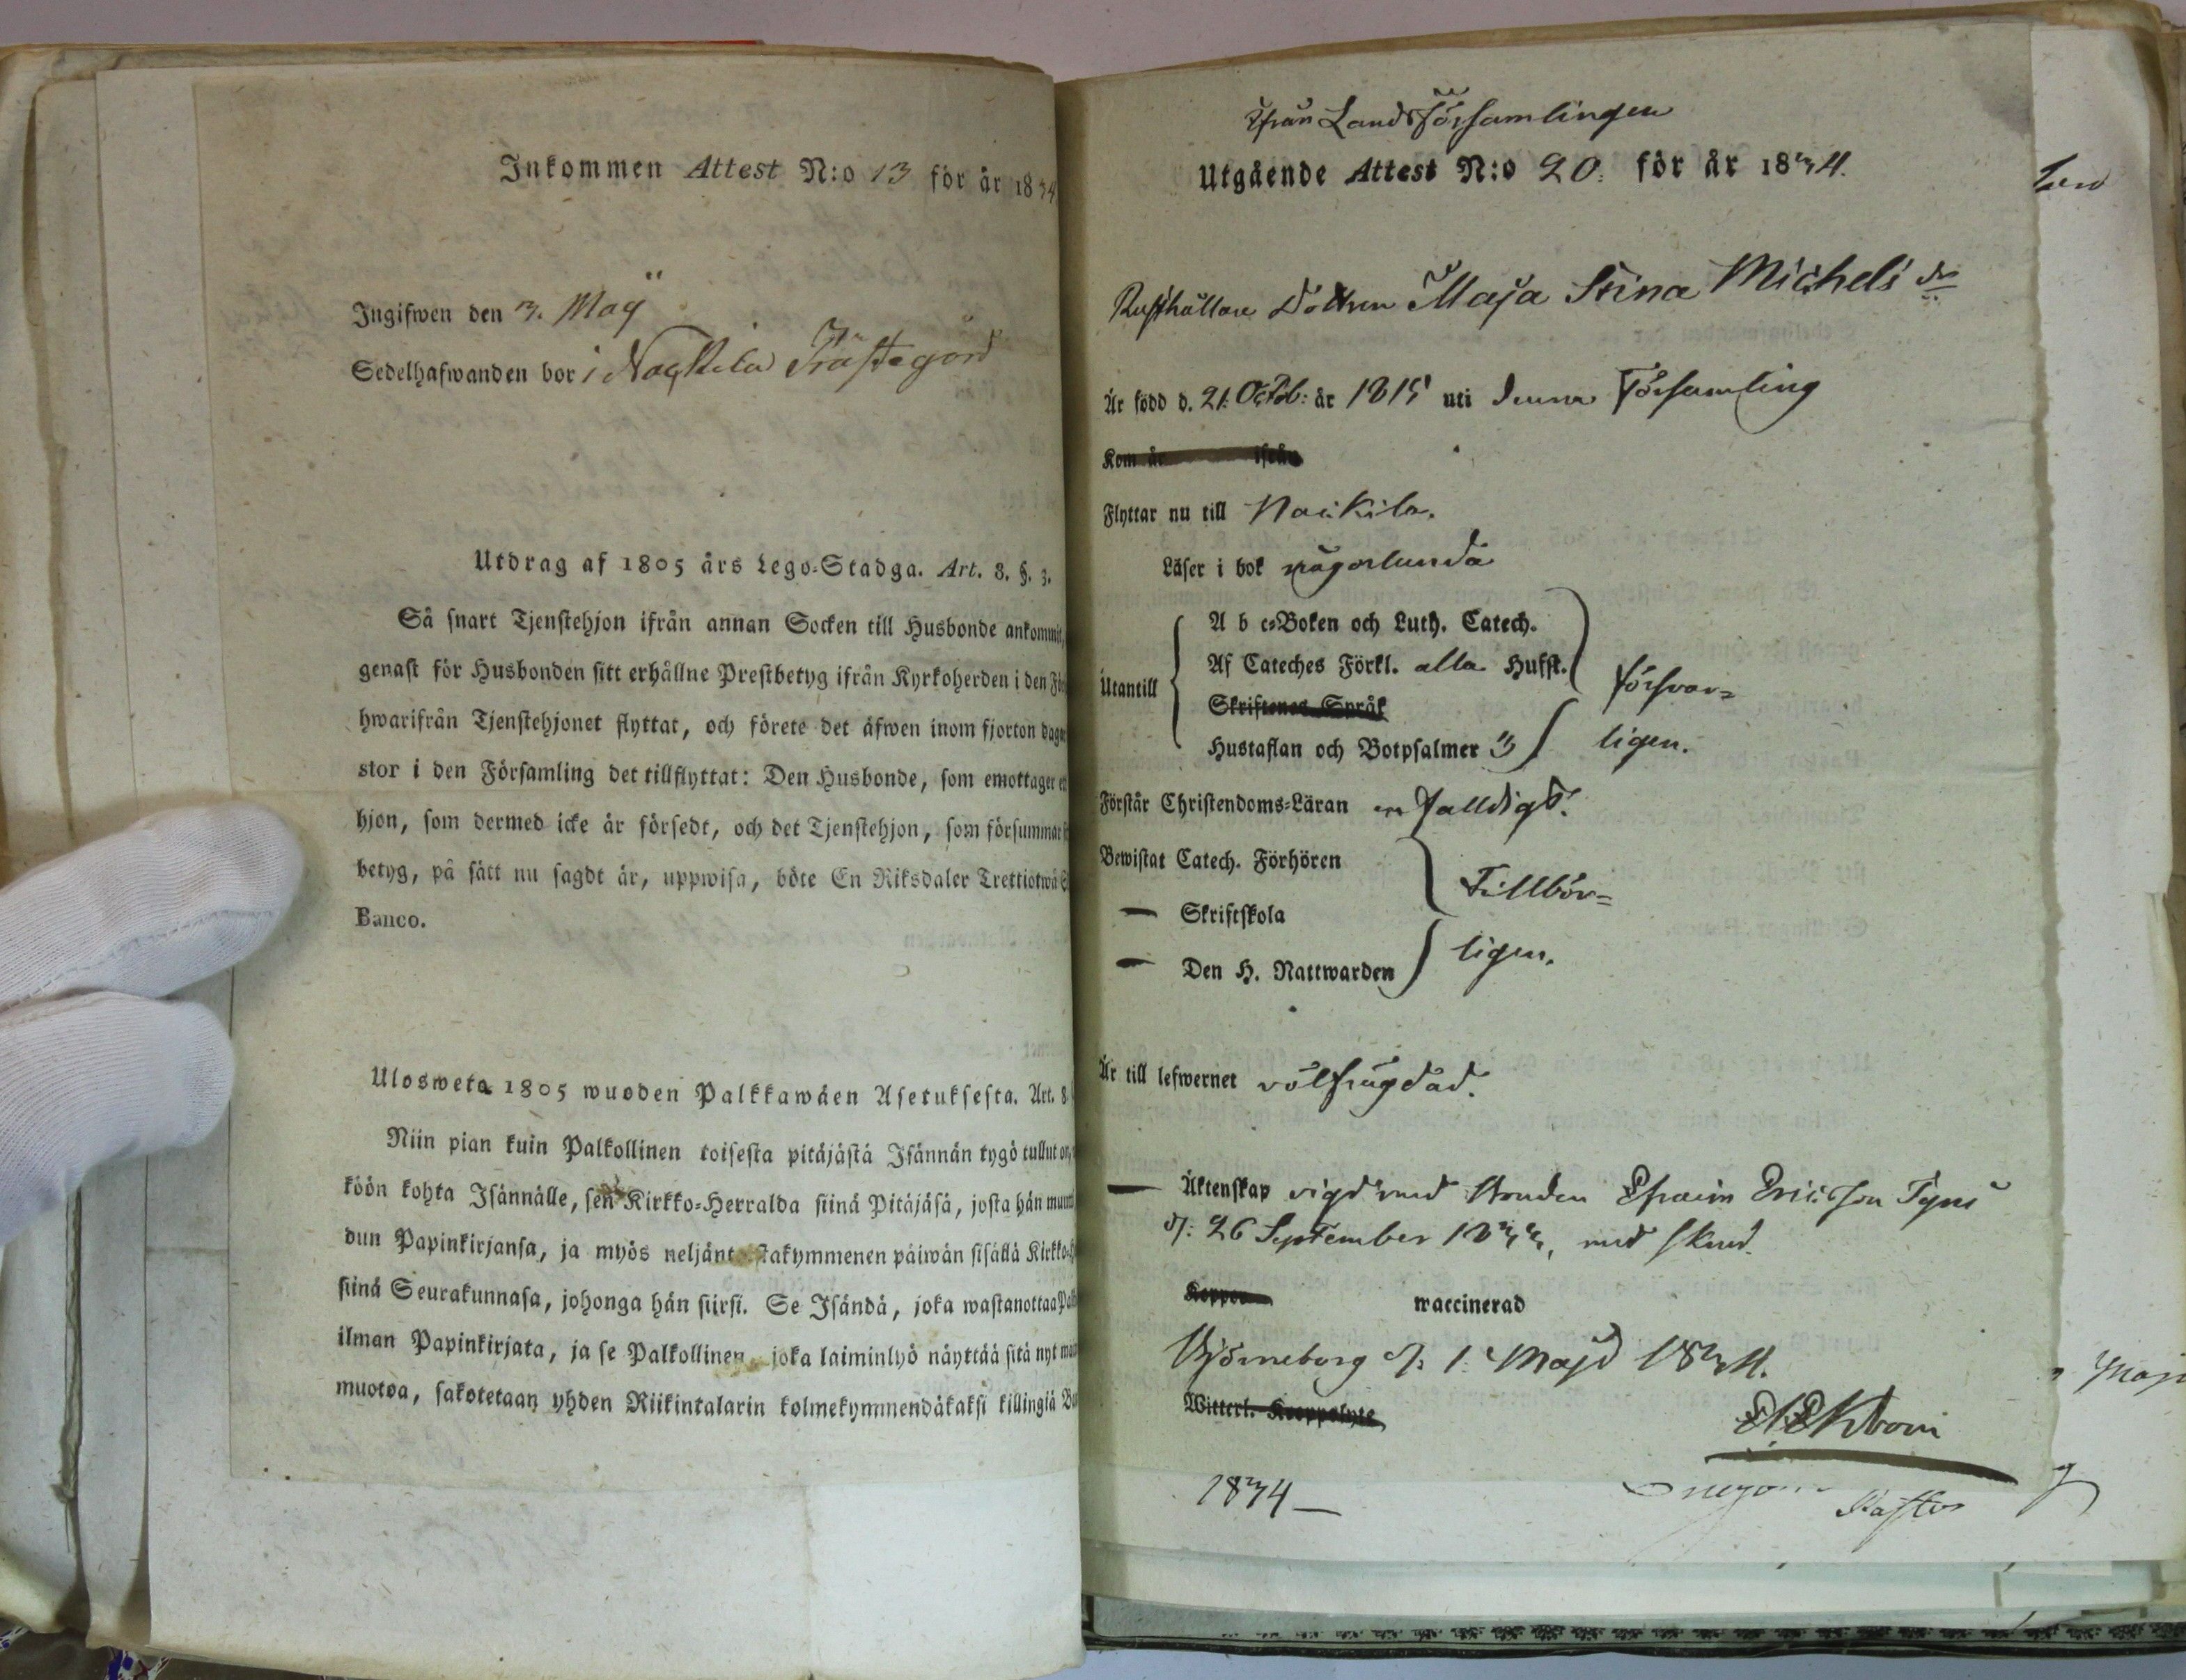 Inkommen Attest N:o 13 för år 1834
Ingifwen den 3. Maij
Sedelhafwanden bor i Nackila Prästegård
Utdrag af 1805 års Lego-Stadga. Art. 8. §. 3.
Så snart Tjenstehjon ifrån annan Socken till Husbonde ankommit,
genast för Husbonden sitt erhållne Prestbetyg ifrån Kyrkoherden i den
hwarifrån Tjenstehjonet flyttat, och förete det äfwen inom fjorton dagar
stor i den Församling det tillflyttat: Den Husbonde, som emottager
hjon, som dermed icke är försedt, och det Tjenstehjon, som försummar
betyg, på sätt nu sagdt är, uppwisa, böte En Riksdaler Trettiotwå
Banco.
Ulosweta 1805 wuoden Palkkawäen Asetuksesta. Art. 8
Niin pian kuin Palkollinen toisesta pitäjästä Isännän tygö tullut on,
köön kohta Isännälle, sen Kirkko-Herralda siinä Pitäjäsä, josta hän
dun Papinkirjansa, ja myös neljäntoistakymmenen päiwän sisällä Kirkko
siinä Seurakunnasa, johonga hän siirsi. Se Isändä, joka wastanottaa
ilman Papinkirjata, ja se Palkollinen, joka laiminlyö näyttää sitä nyt
muotoa, sakotetaan yhden Riikintalarin kolmekymmendäkaksi killingiä
Från Landsförsamlingen
Utgående Attest N:o 20. för år 1834.
Rusthållare Dottren Maja Stina Michels dr
Är född d. 21. Octob: år 1815 uti denna Församling
Kom år ifrån
Flyttar nu till Nackila.
Läser i bok någorlunda
A b c-Boken och Luth. Catech.
Af Cateches Förkl. alla Hufst.
Utantill
Skriftenes Språk
försvar=
Hustaflan och Botpsalmer 3
ligen.
Förstår Christendoms-Läran enfalldigt.
Bewistat Catech. Förhören
Tillbör=
— Skriftskola
— Den H. Nattwarden
ligen.
Är till lefwernet välfrägdad.
— Äktenskap vigd med Bonden Efraim Ericsson Tyni
d: 26 September 1833, med
Koppor
waccinerad
Björneborg d: 1. Maji 1834.
Witterl. Kroppslyte
1834 —
Pastor